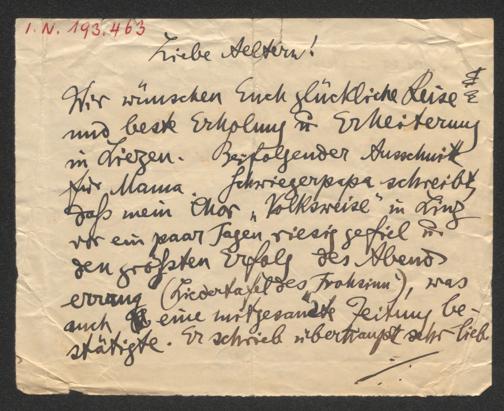 I. N. 193.463
Liebe Aeltern!
Wir wünschen Euch glückliche Reise
und beste Erholung u Erheiterung
in Liezen. Beifolgender Ausschnitt
für Mama. Schwiegerpapa schreibt,
daß mein Chor „Volksweise" in Linz
vor ein paar Tagen riesig gefiel u
den größten Erfolg des Abends
errang (Liedertafel des Frohsinn), was
auch eine mitgesandte Zeitung be-
stätigte. Er schrieb überhaupt sehr lieb